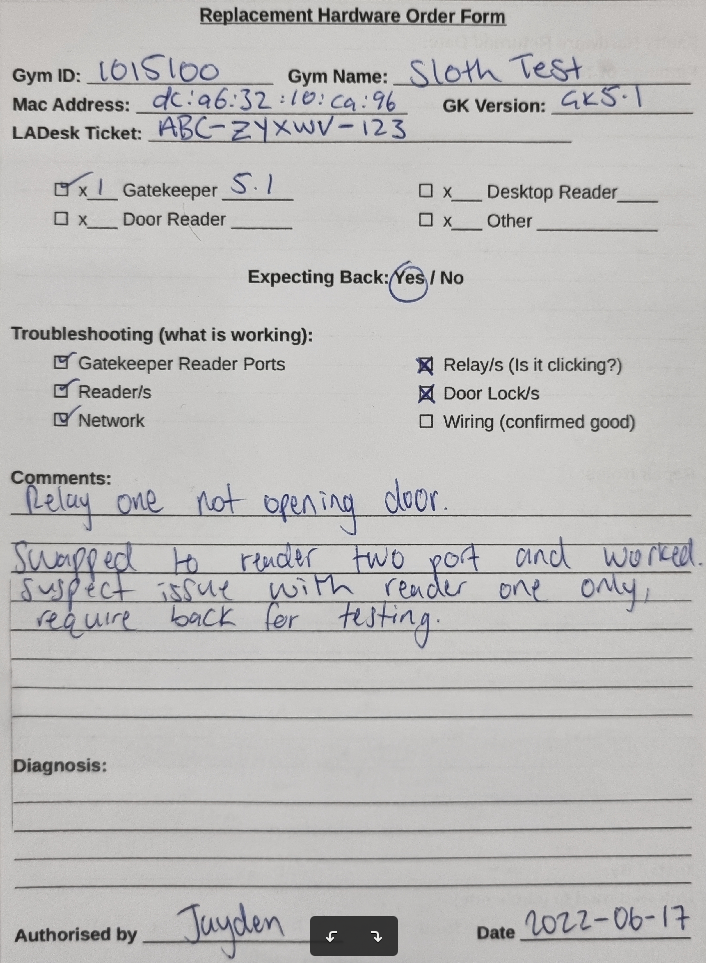 Replacement Hardware Order Form
Gym ID: 1015100 Gym Name: Sloth Test
Mac Address: dc:a6:32:10:ca:96 GK Version: GK5.1
LADesk Ticket: ABC-ZYXWV-123
☑ x 1 Gatekeeper 5.1 ☐ x___ Desktop Reader____
☐ x___ Door Reader ______ ☐ x___ Other ____________
Expecting Back: Yes / No
Troubleshooting (what is working):
☑ Gatekeeper Reader Ports ☒ Relay/s (Is it clicking?)
☑ Reader/s ☒ Door Lock/s
☑ Network ☐ Wiring (confirmed good)
Comments:
Relay one not opening door.
Swapped to reader two port and worked.
suspect issue with reader one only,
require back for testing.
Diagnosis:
Authorised by Jayden Date 2022-06-17